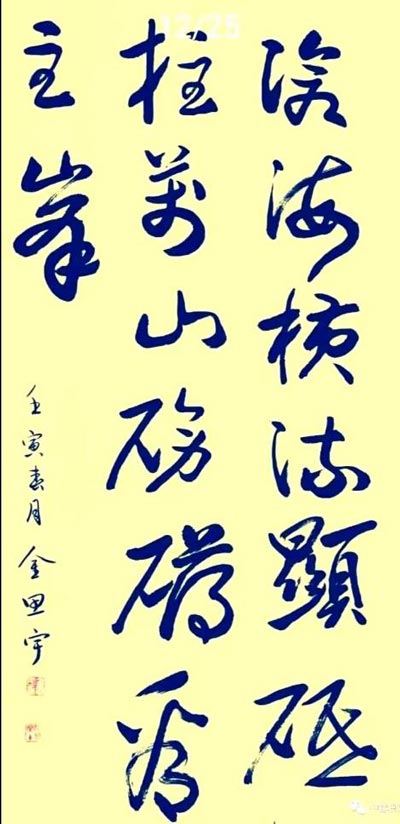 12/25
滄海横流顯砥
柱萬山磅礴看
主峯
壬寅春月 金思宇